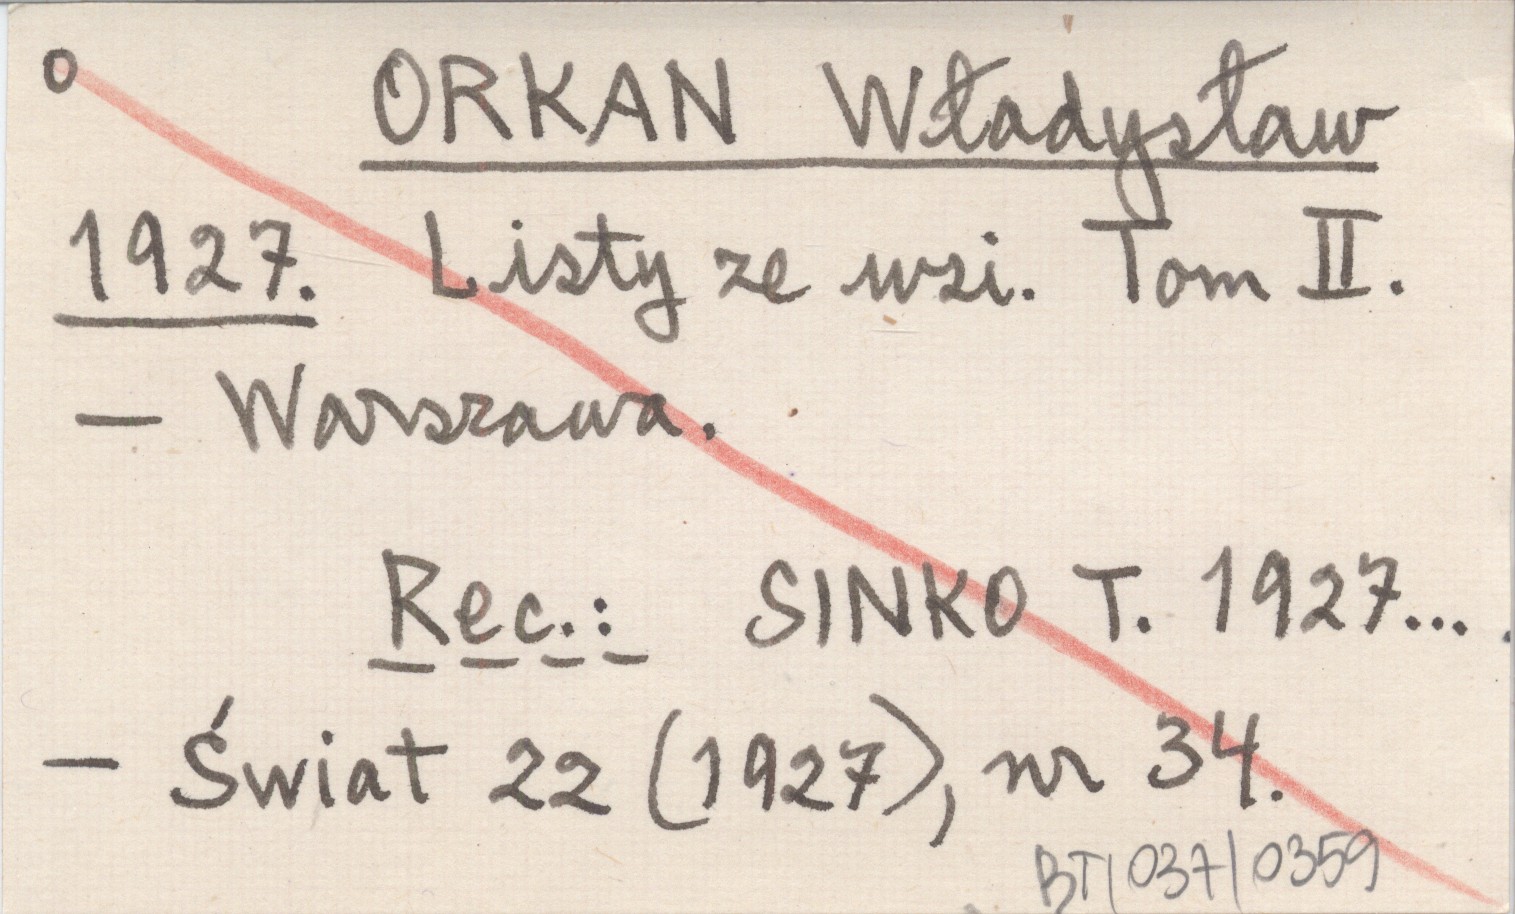 o ORKAN Władysław
1927. Listy ze wsi. Tom II.
— Warszawa.
Rec.: SINKO T. 1927...
— Świat 22 (1927), nr 34.
BT/037/0359